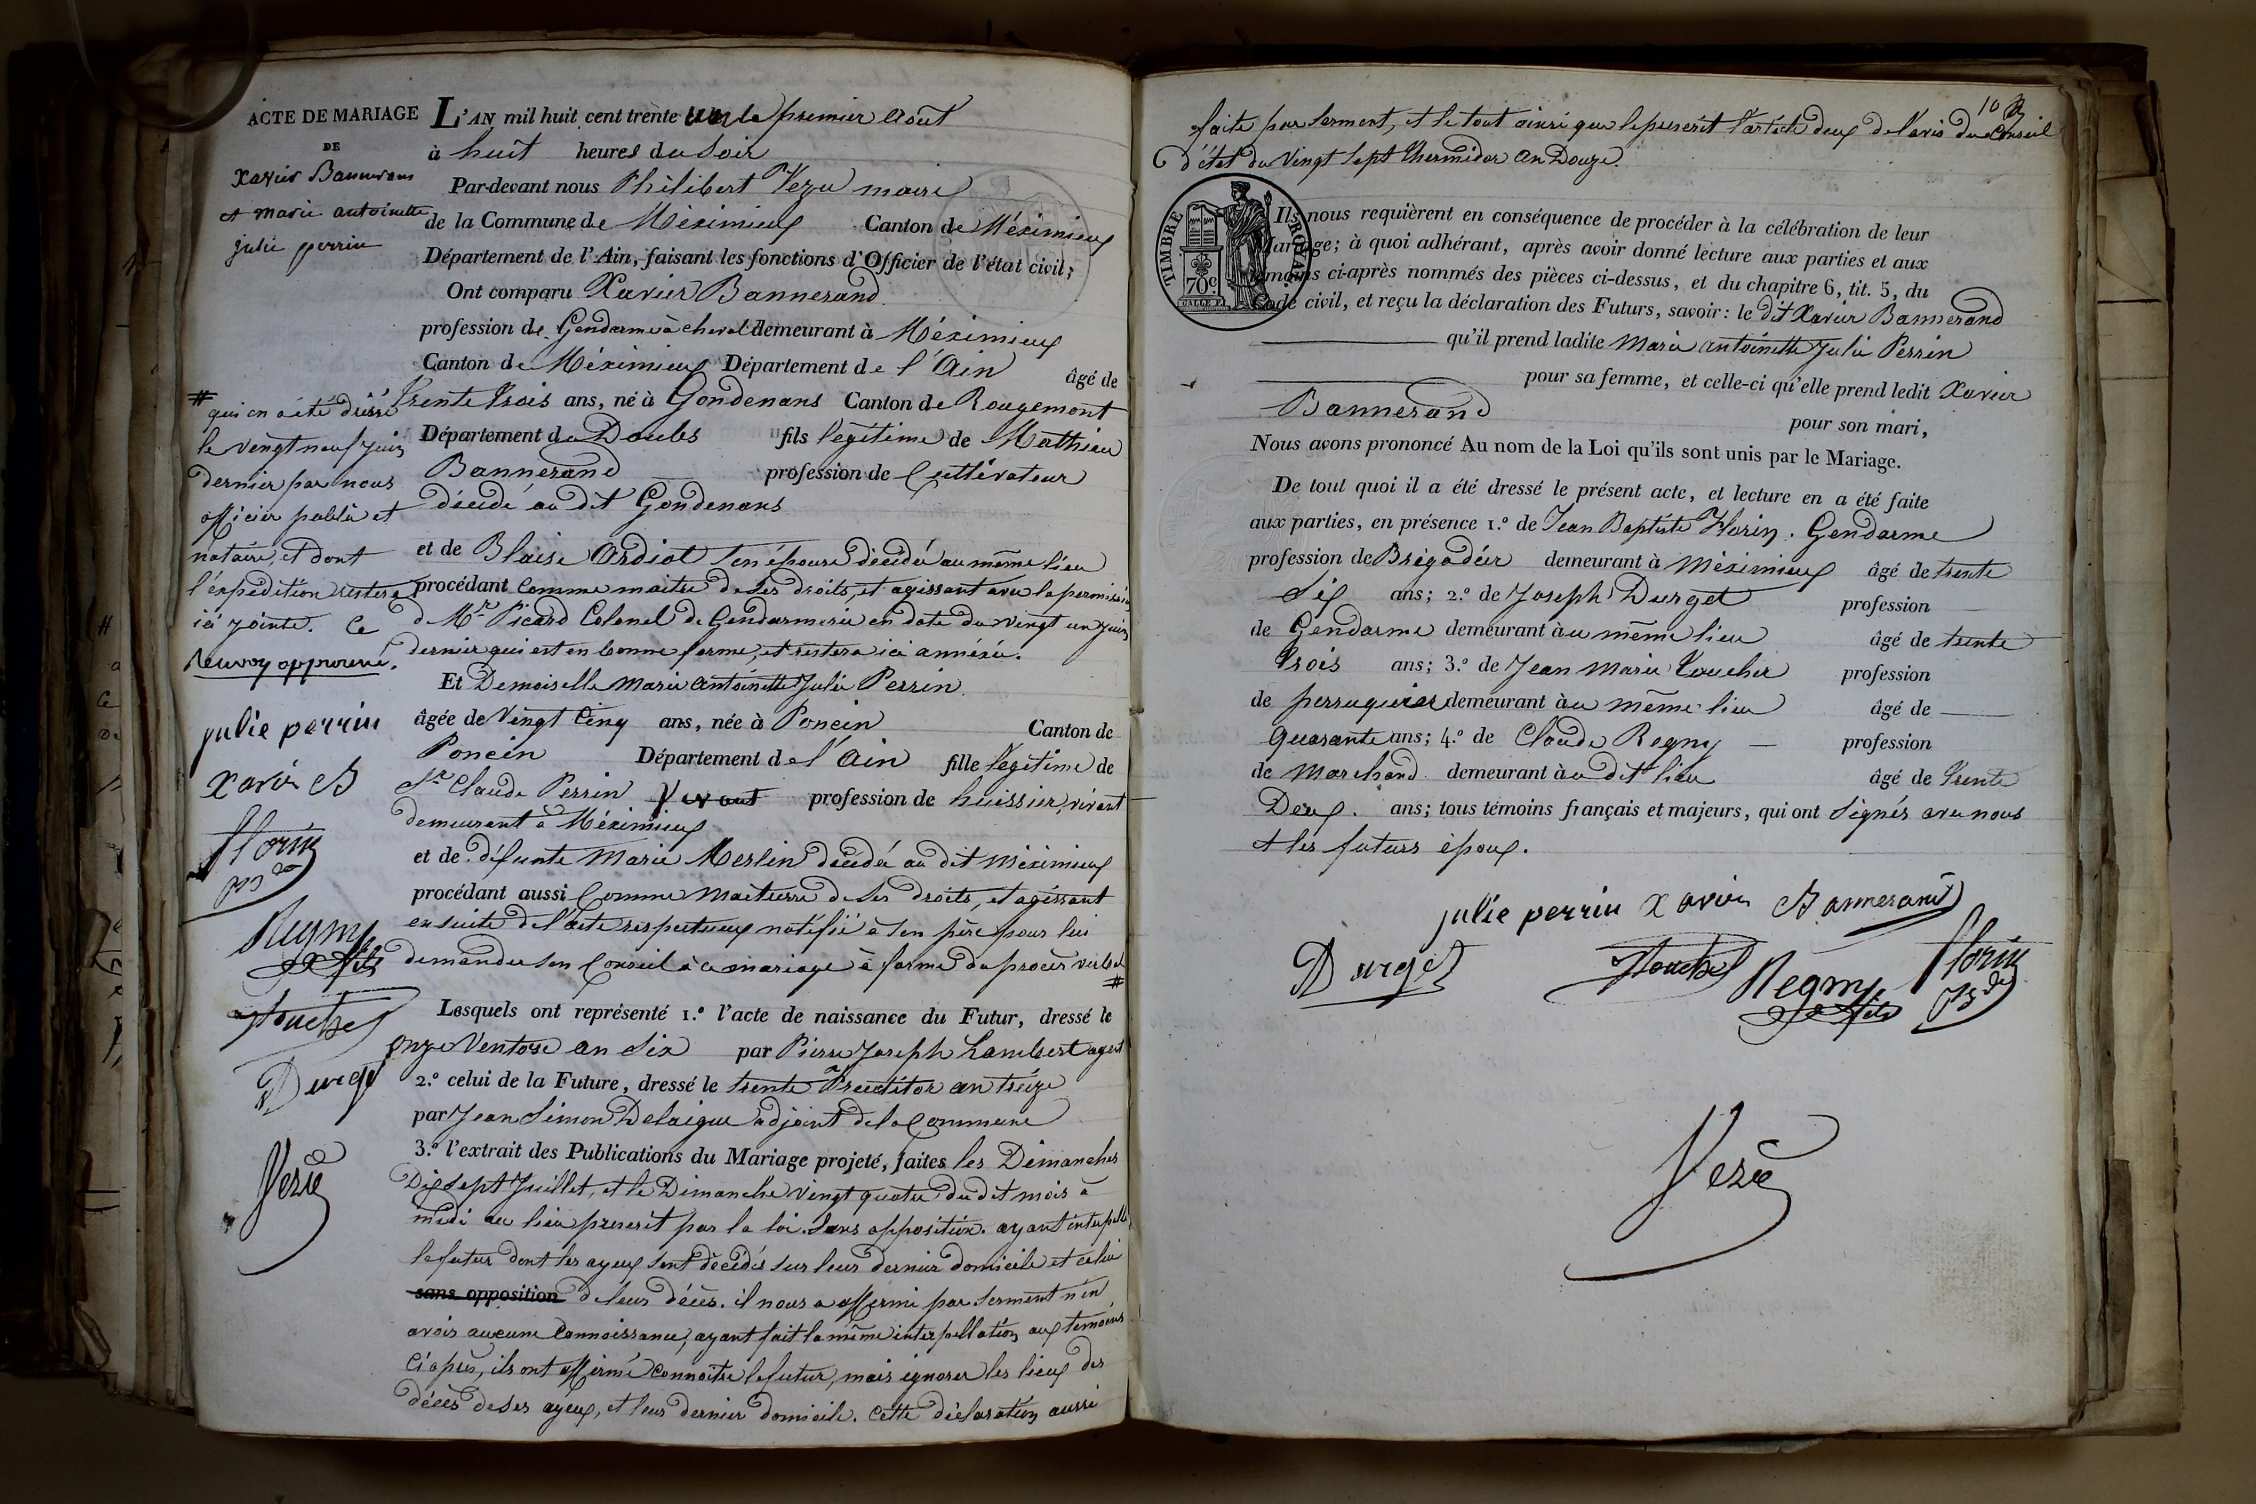 ACTE DE MARIAGE
DE
Xavier Bannerand
et marie antoinette
julie perrin
# qui en a été dréssé
le vingt neuf juin
dernier par nous
officier public et
notaire, et dont
l'expédition restera
ici jointe. Ce
Renvoy approuvé.
julie perrin
Xavier B
Florin
Bdier
Regny
fils
Touche
Durget
Vezu
L'AN mil huit cent trente un le premier Août
à huit heures du Soir
Par-devant nous Philibert Vezu maire
de la Commune de Méximieux Canton de Méximieux
Département de l'Ain, faisant les fonctions d'Officier de l'état civil;
Ont comparu Xavier Bannerand
profession de Gendarme à cheval demeurant à Méximieux
Canton de Méximieux Département de l'Ain âgé de
trente trois ans, né à Gondenans Canton de Rougemont
Département du Doubs fils légitime de Mathieu
Bannerand profession de Cultivateur
décédé au dit Gondenans
et de Blaise Ardiot son épouse décédée au même lieu
procédant comme maitre de ses droits, et agissant avec la permission
de Mr Picard Colonel de Gendarmerie en date du vingt un juin
dernier qui est en bonne forme, et restera ici annéxée.
Et Demoiselle Marie Antoinette Julie Perrin
âgée de vingt Cinq ans, née à Poncin Canton de
Poncin Département de l'Ain fille légitime de
Sr Claude Perrin vivant profession de huissier, vivant
demeurant à Méximieux
et de défunte Marie Merlin décédée au dit Méximieux
procédant aussi Comme Maitresse de ses droits, et agissant
en suite de l'acte respectueux notifié à son père pour lui
demander son Conseil à ce mariage à forme du procès verbal
#
Lesquels ont représenté 1.° l'acte de naissance du Futur, dressé le
onze Ventose an six par Pierre Joseph Lambert agent
2.° celui de la Future, dressé le trente Fructidor an treize
par Jean Simon Delaigue adjoint de la Commune
3.° l'extrait des Publications du Mariage projeté, faites les Dimanches
Dix sept Juillet, et le Dimanche vingt quatre du dit mois à
midi au lieu prescrit par la loi. Sans opposition. ayant interpellé
le futur dont les ayeux sont décédés sur leur dernier domicile et celui
sans opposition de leurs décès. il nous a affermi par serment n'en
avoir aucune Connoissance, ayant fait la même interpellation aux témoins
Ci après, ils ont affirmé connoitre le futur, mais ignorer les lieux des
décès de ses ayeux, et leur dernier domicile. Cette déclaration aussi
10
faite par serment, et le tout ainsi que le prescrit l'article deux de l'avis du Conseil
d'état du vingt sept thermidor an Douze.
TIMBRE ROYAL
70c.
Ils nous requièrent en conséquence de procéder à la célébration de leur
Mariage; à quoi adhérant, après avoir donné lecture aux parties et aux
témoins ci-après nommés des pièces ci-dessus, et du chapitre 6, tit. 5, du
Code civil, et reçu la déclaration des Futurs, savoir: le dit Xavier Bannerand
qu'il prend ladite Marie Antoinette Julie Perrin
pour sa femme, et celle-ci qu'elle prend ledit Xavier
Bannerand pour son mari,
Nous avons prononcé Au nom de la Loi qu'ils sont unis par le Mariage.
De tout quoi il a été dressé le présent acte, et lecture en a été faite
aux parties, en présence 1.° de Jean Baptiste Florin. Gendarme
profession de Brigadier demeurant à Méximieux âgé de trente
six ans; 2.° de Joseph Durget profession
de Gendarme demeurant à u même lieu âgé de trente
trois ans; 3.° de Jean Marie Toucher profession
de perruquier demeurant à u même lieu âgé de
quarante ans; 4.° de Claude Regny profession
de Marchand demeurant à u dit lieu âgé de trente
Deux. ans; tous témoins français et majeurs, qui ont signés avec nous
et les futurs époux.
julie perrin Xavier Bannerand
Durget Touche Regny fils Florin Bdier
Vezu